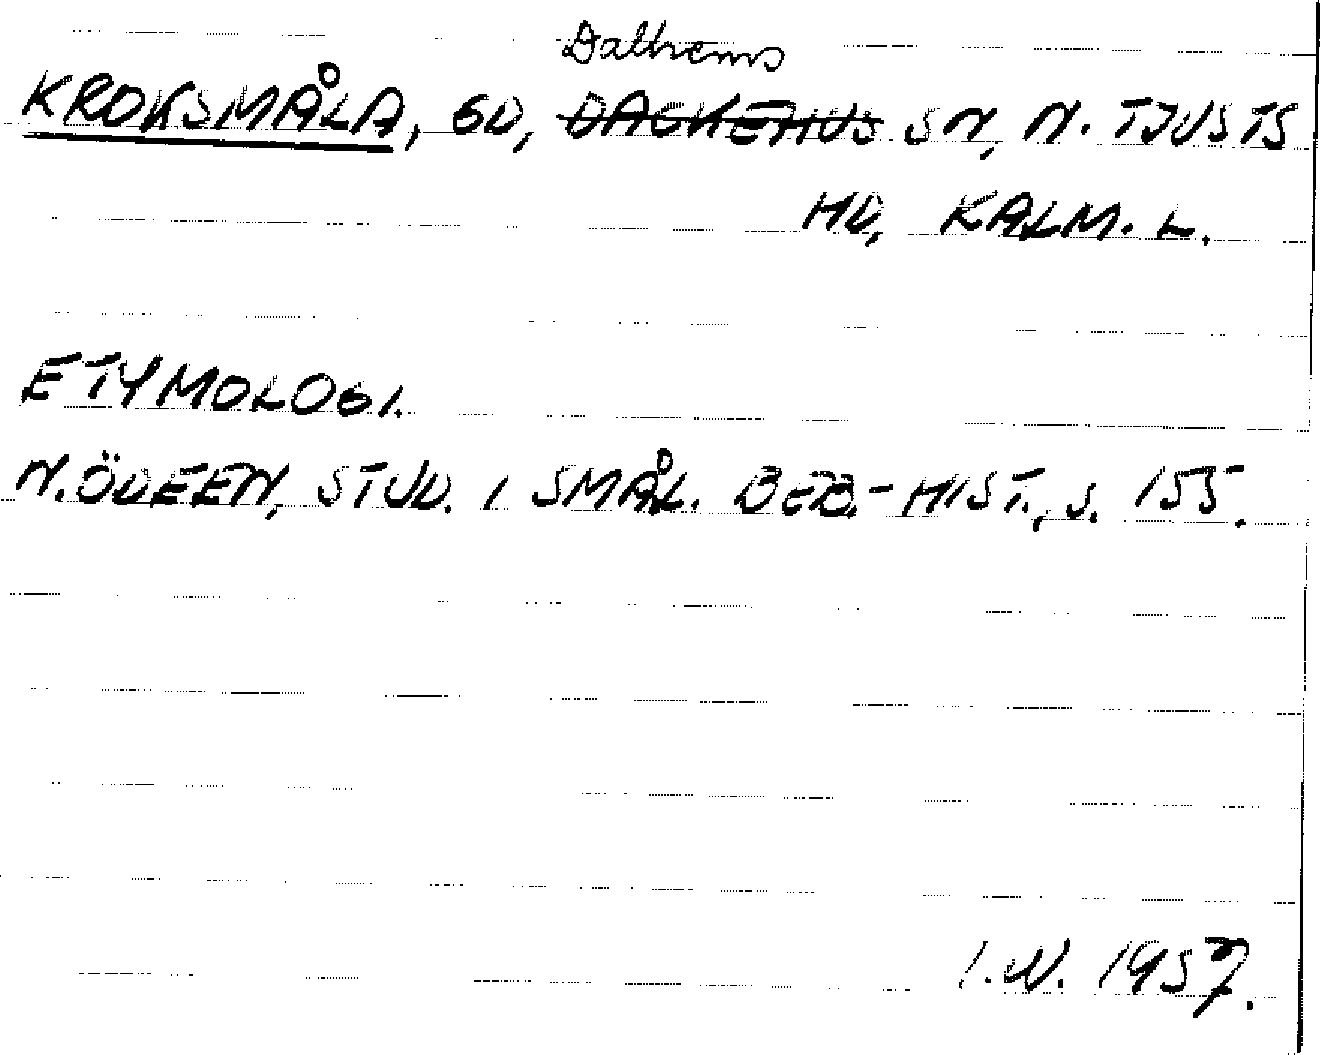 Dalhems
KROKSMÅLA, GD, SN, N. TJUSTS
HD, KALM. L.
ETYMOLOGI.
N. ÖDEEN, STUD. I SMÅL. BEB.-HIST., S. 155.
I.N. 1957.